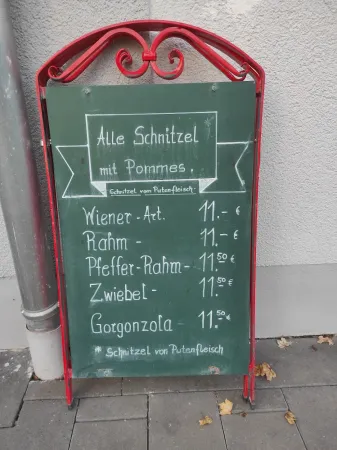 Alle Schnitzel
mit Pommes.
Schnitzel vom Putenfleisch
Wiener-Art. 11.- €
Rahm - 11.- €
Pfeffer-Rahm- 11.50 €
Zwiebel- 11.50 €
Gorgonzola - 11.50 €
* Schnitzel von Putenfleisch